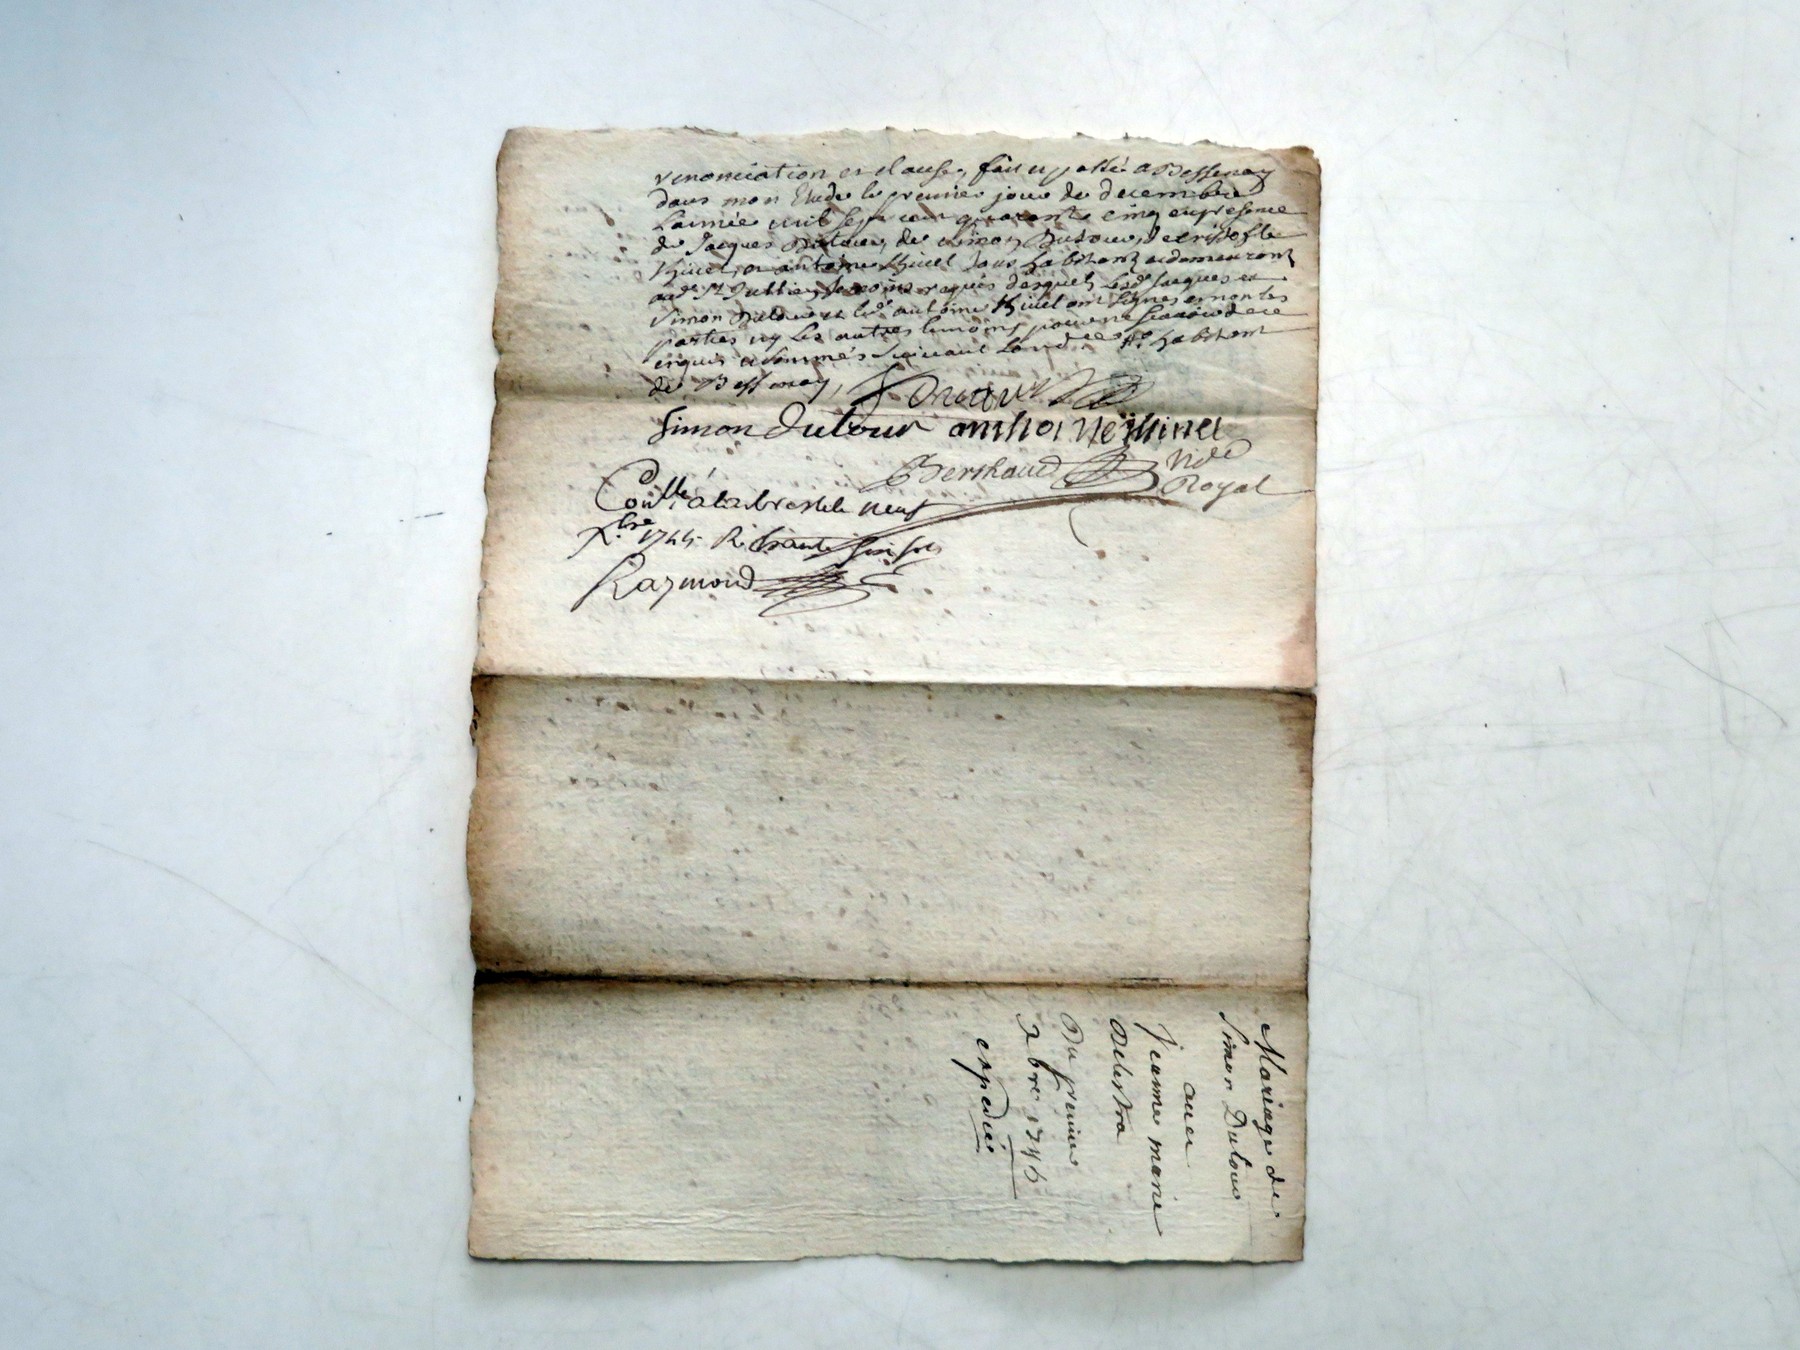 renonciation et clause, fait et passé a Bessenay
dans mon Etude le premier jour de decembre
L'année mil sept cent quarante cinq en presence
de Jacques Dutour, de Simon Dutour, de cristofle
thivel, et antoine thivel tous habitants et demeurant
aud. St Jullien, temoins requis desquels Lesd. Jacques et
Simon Dutour et led. antoine thivel ont signés et non les
parties ny les autres temoins pour ne scavoir de ce
enquis et sommés suivant Lord.ce habitant
de Bessenay,
Simon dutour anthoine thivel
Berthaud N.re Royal
Con.llé a larbresle le neuf
X.bre 1745 R.
Raymond
Mariage de
Simon Dutour
avec
Jeanne marie
Delestra
Du premier
Xbre 1745
expedié